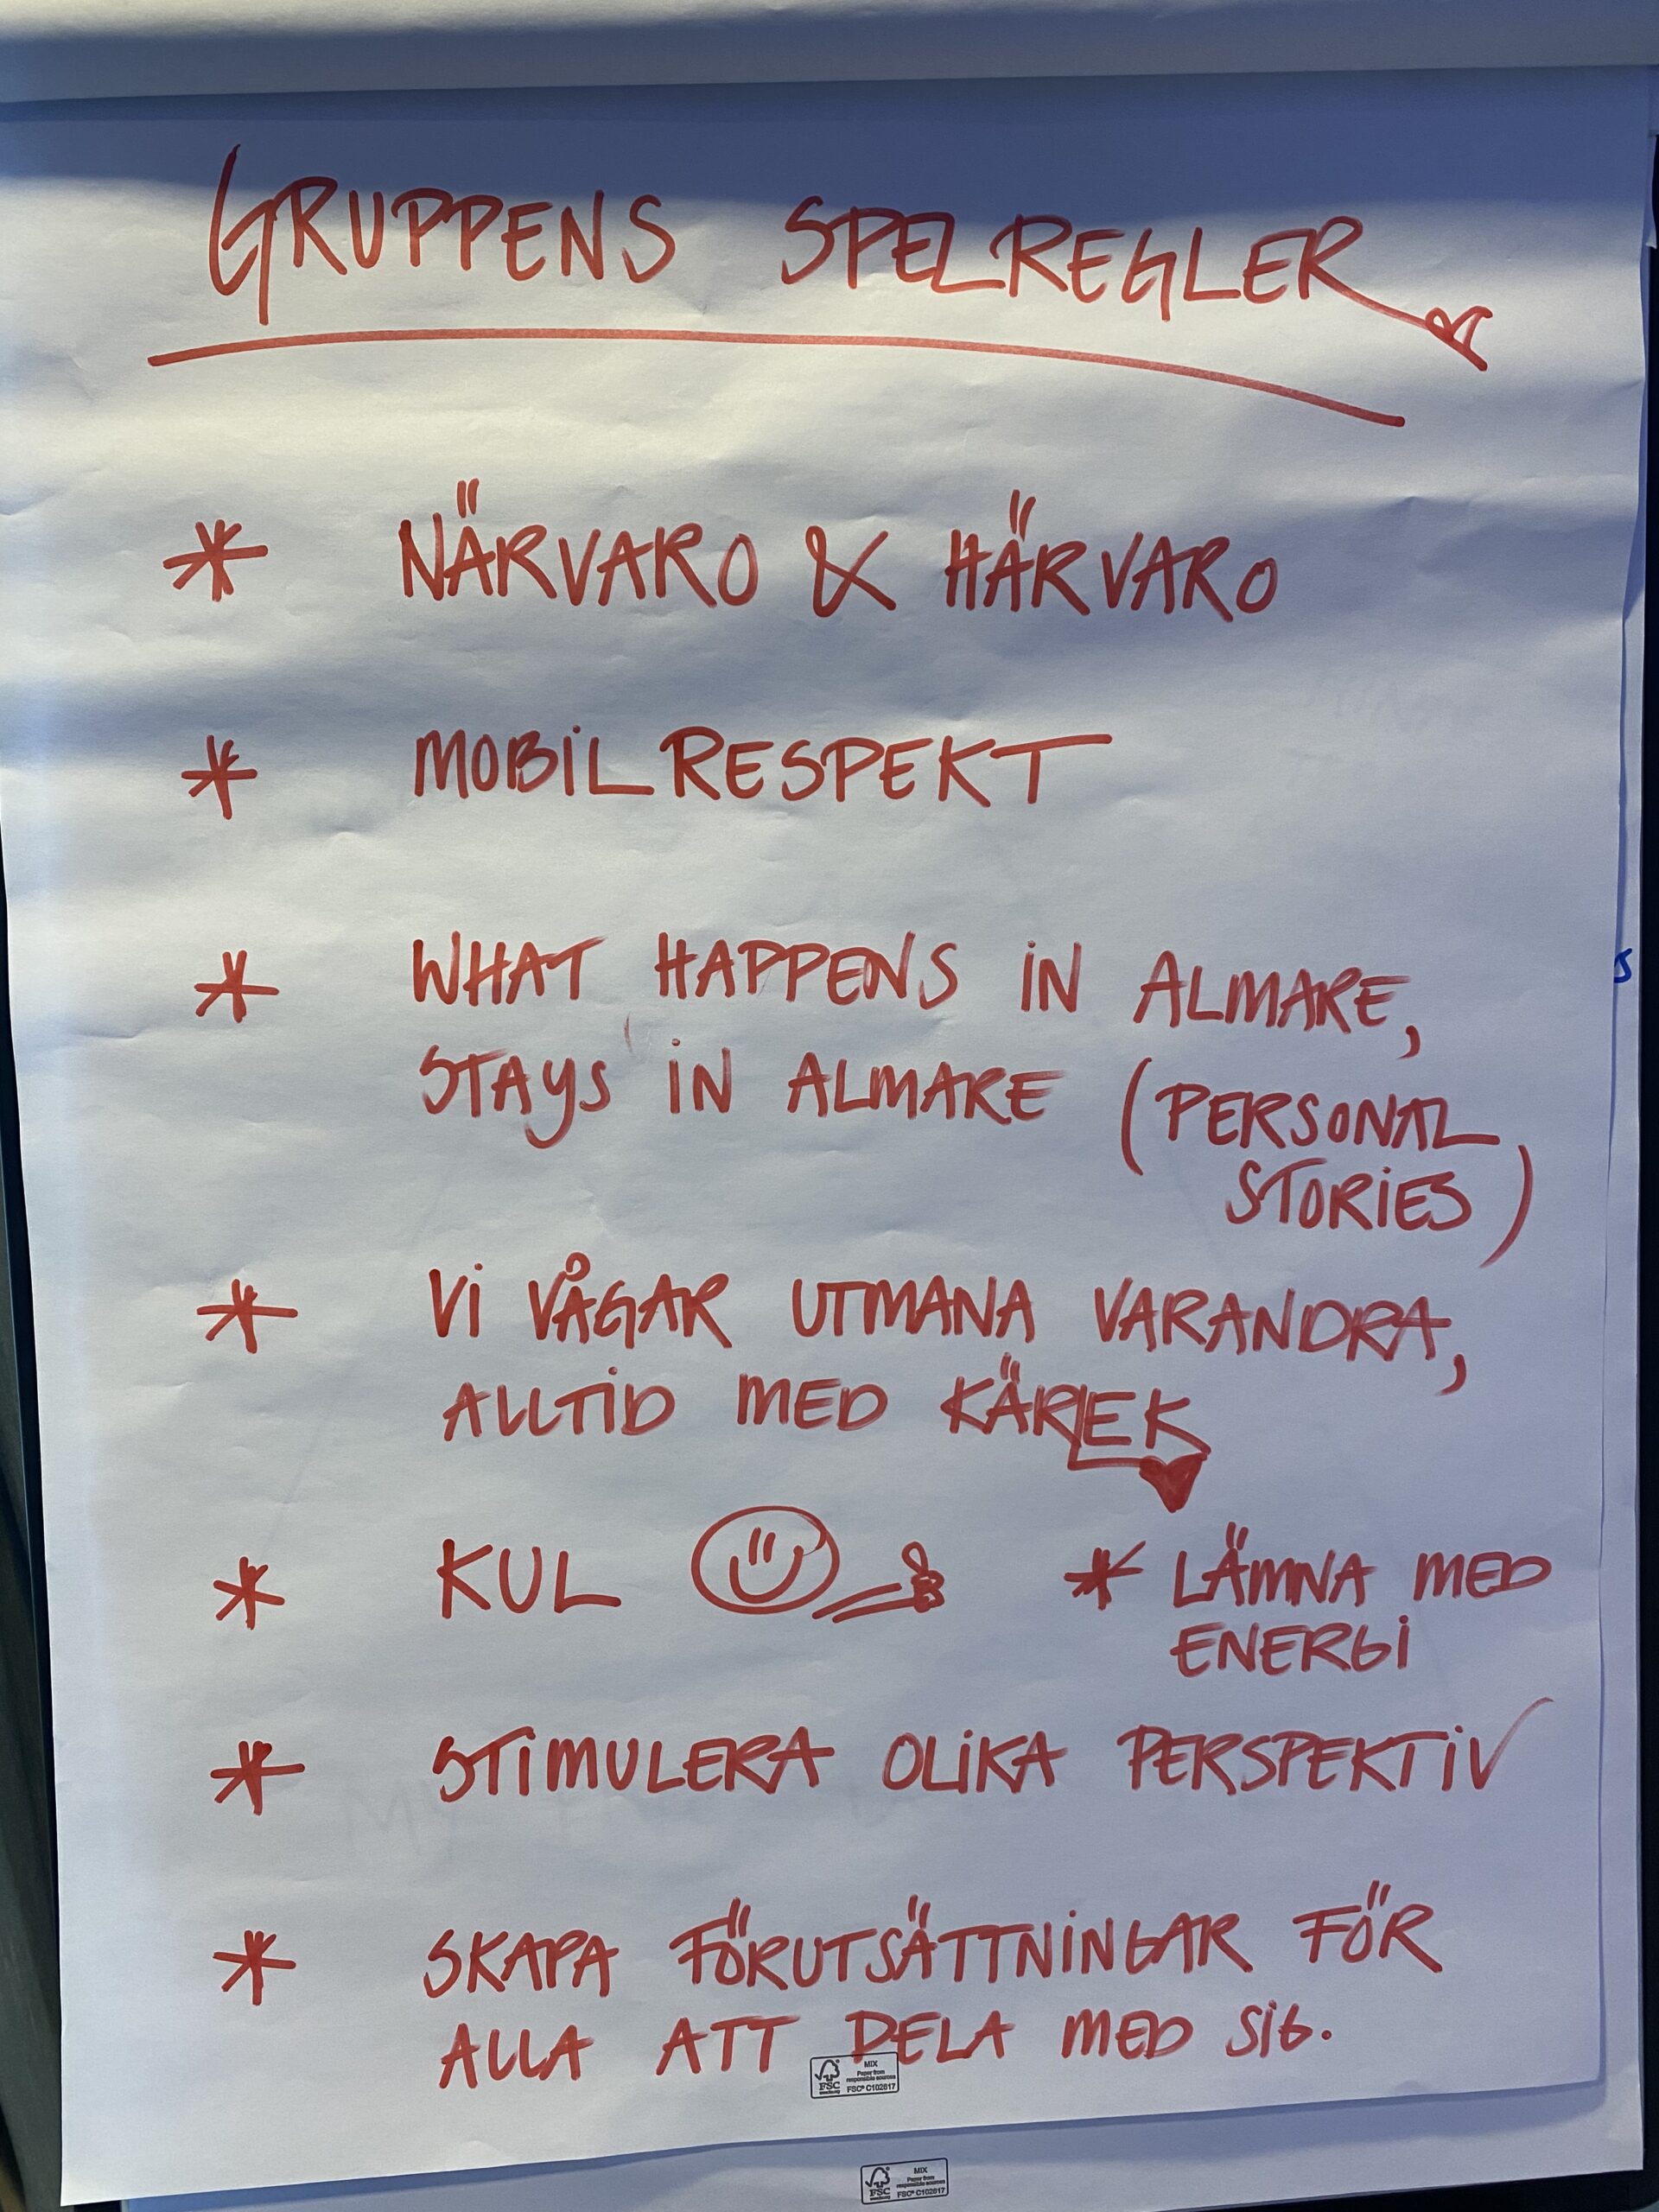 GRUPPENS SPELREGLER
* NÄRVARO & HÄRVARO
* MOBILRESPEKT
* WHAT HAPPENS IN ALMARE,
STAYS IN ALMARE (PERSONAL
STORIES)
* VI VÅGAR UTMANA VARANDRA,
ALLTID MED KÄRLEK
* KUL
* LÄMNA MED
ENERGI
* STIMULERA OLIKA PERSPEKTIV
* SKAPA FÖRUTSÄTTNINGAR FÖR
ALLA ATT DELA MED SIG.
FSC
MIX
Paper from
responsible sources
FSC® C102617
FSC
MIX
Paper from
responsible sources
FSC® C102617